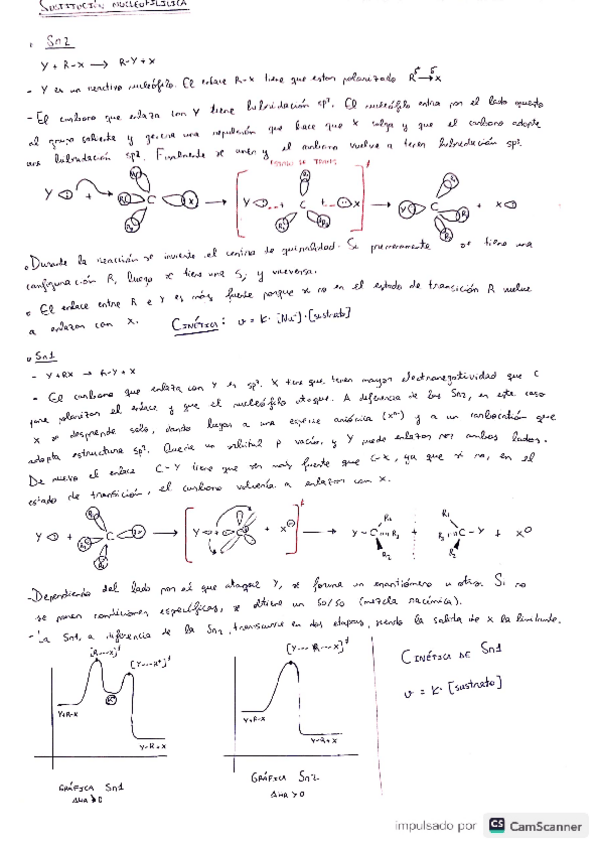 SUSTITUCIÓN NUCLEOFÍLICA
Sn2
Y + R-X → R-Y + X
- Y es un reactivo nucleófilo. El enlace R-X tiene que estar polarizado R→X
- El carbono que enlaza con Y tiene hibridación sp³. El nucleófilo entra por el lado opuesto
al grupo saliente y genera una repulsión que hace que X salga y que el carbono adopte
una hibridación sp². Finalmente se unen y el carbono vuelve a tener hibridación sp³.
ESTADO DE TRANS.
Y + R₁ C X → [Y ... C ... X] → Y C + X
Durante la reacción se invierte el centro de quiralidad. Si primeramente se tiene una
configuración R, luego se tiene una S, y viceversa.
El enlace entre R e Y es más fuerte porque si no en el estado de transición R vuelve
a enlazar con X. CINÉTICA: v = K · [Nu⁻] · [sustrato]
Sn1
- Y + RX → R-Y + X
- El carbono que enlaza con Y es sp³. X tiene que tener mayor electronegatividad que C
para polarizar el enlace y que el nucleófilo ataque. A diferencia de las Sn2, en este caso
X se desprende solo, dando lugar a una especie aniónica y a un carbocatión que
adopta estructura sp². Queda un orbital p vacío, y Y puede enlazar por ambos lados.
De nuevo el enlace C-Y tiene que ser más fuerte que C-X, ya que si no, en el
estado de transición, el carbono volvería a enlazar con X.
Y + C X → [Y C + X⁻] → Y-C R₁ R₂ R₃ + R₁ R₂ R₃ C-Y + X
- Dependiendo del lado por el que ataque Y, se forma un enantiómero u otro. Si no
se ponen condiciones específicas, se obtiene un 50/50 (mezcla racémica).
- La Sn1, a diferencia de la Sn2, transcurre en dos etapas, siendo la salida de X la limitante.
[R---X]
[Y---R]
Y+R-X
Y-R+X
GRÁFICA Sn1
[Y--- R---X]
Y+R-X
Y-R+X
GRÁFICA Sn2
CINÉTICA DE Sn1
v = K · [sustrato]
impulsado por CS CamScanner